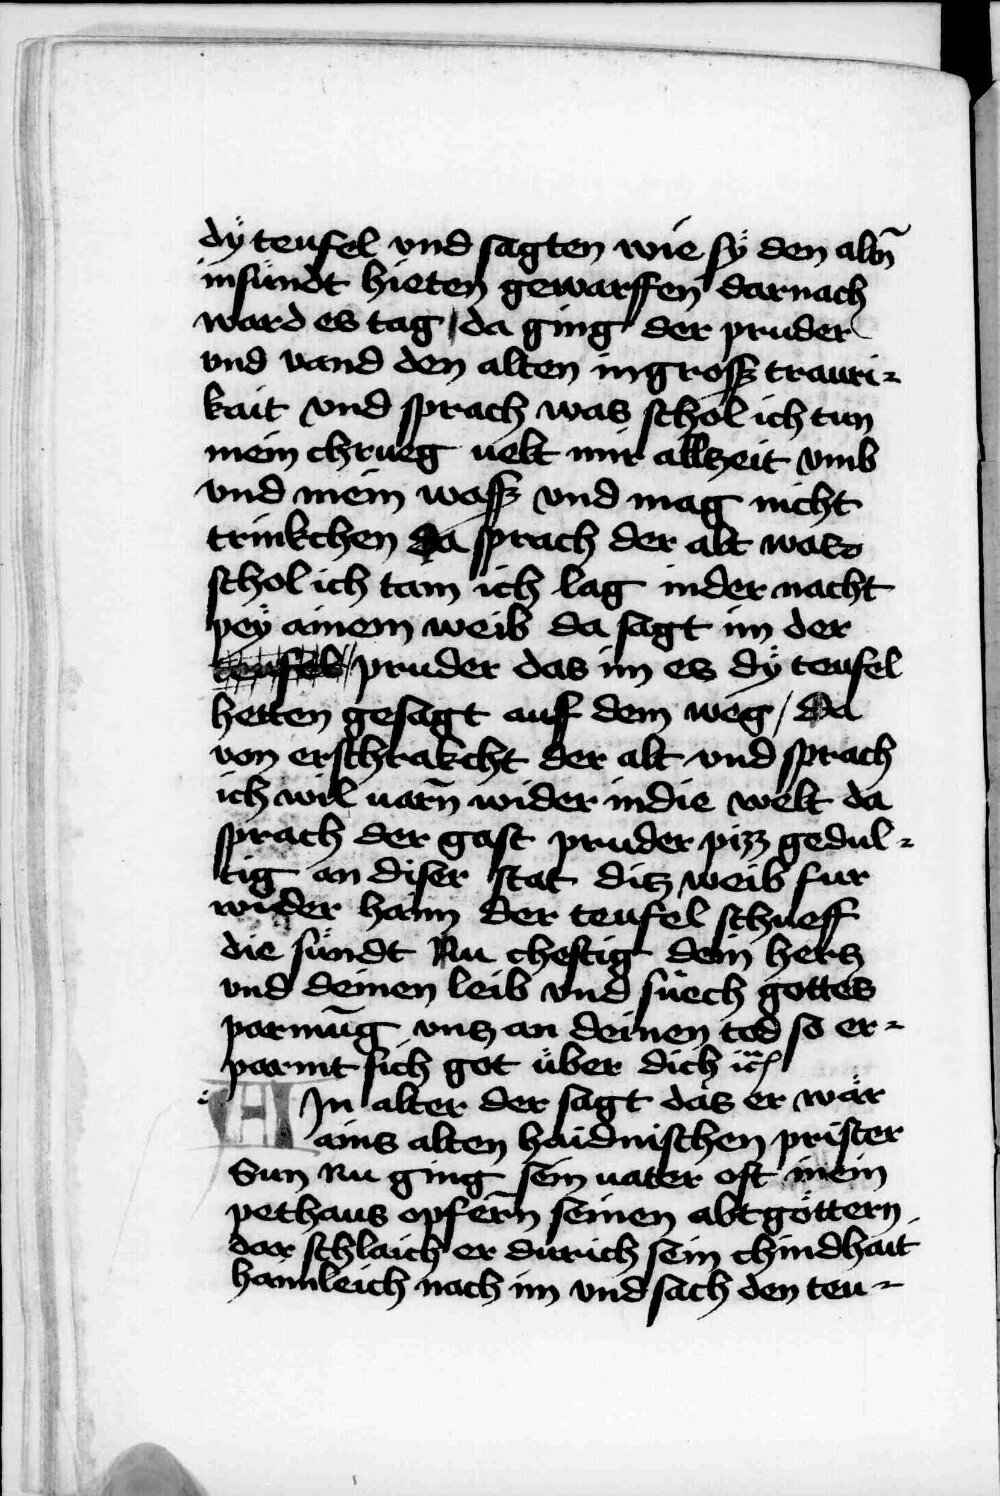 dÿ teufel vnd sagten wie sÿ den altn̄
in sündt hieten gewarffen darnach
ward es tag / da ging der pruder
vnd vand den alten in gross trauri-
kait vnd sprach was schol ich tun
mein chrueg uelt mir allzeit vmb
vnd mein wass vnd mag nicht
trinkchen da sprach der alt was
schol ich tain ich lag in der nacht
peÿ ainem weib da sagt im der
teufel pruder das im es dÿ teufel
hetten gesagt auf dem weg / Da
von erschrakcht der alt vnd sprach
ich wil uarn̄ wider in die welt da
sprach der gast pruder piz gedul-
tig an diser stat ditz weib fur
wider haim der teufel schueff
die sündt Nu chestig dein hertz
vnd deinen leib vnd süech gottes
parmūg vntz an deinen tod so er-
parmt sich got über dich ꝛc
AIn alter der sagt das er wär
ains alten haidnischen prister
Sun Nu ging sein uater oft in ein
pethaus opfern̄ seinen abtgöttern
dar schlaich er durich sein chindhait
haimleich nach im vnd sach den teu-